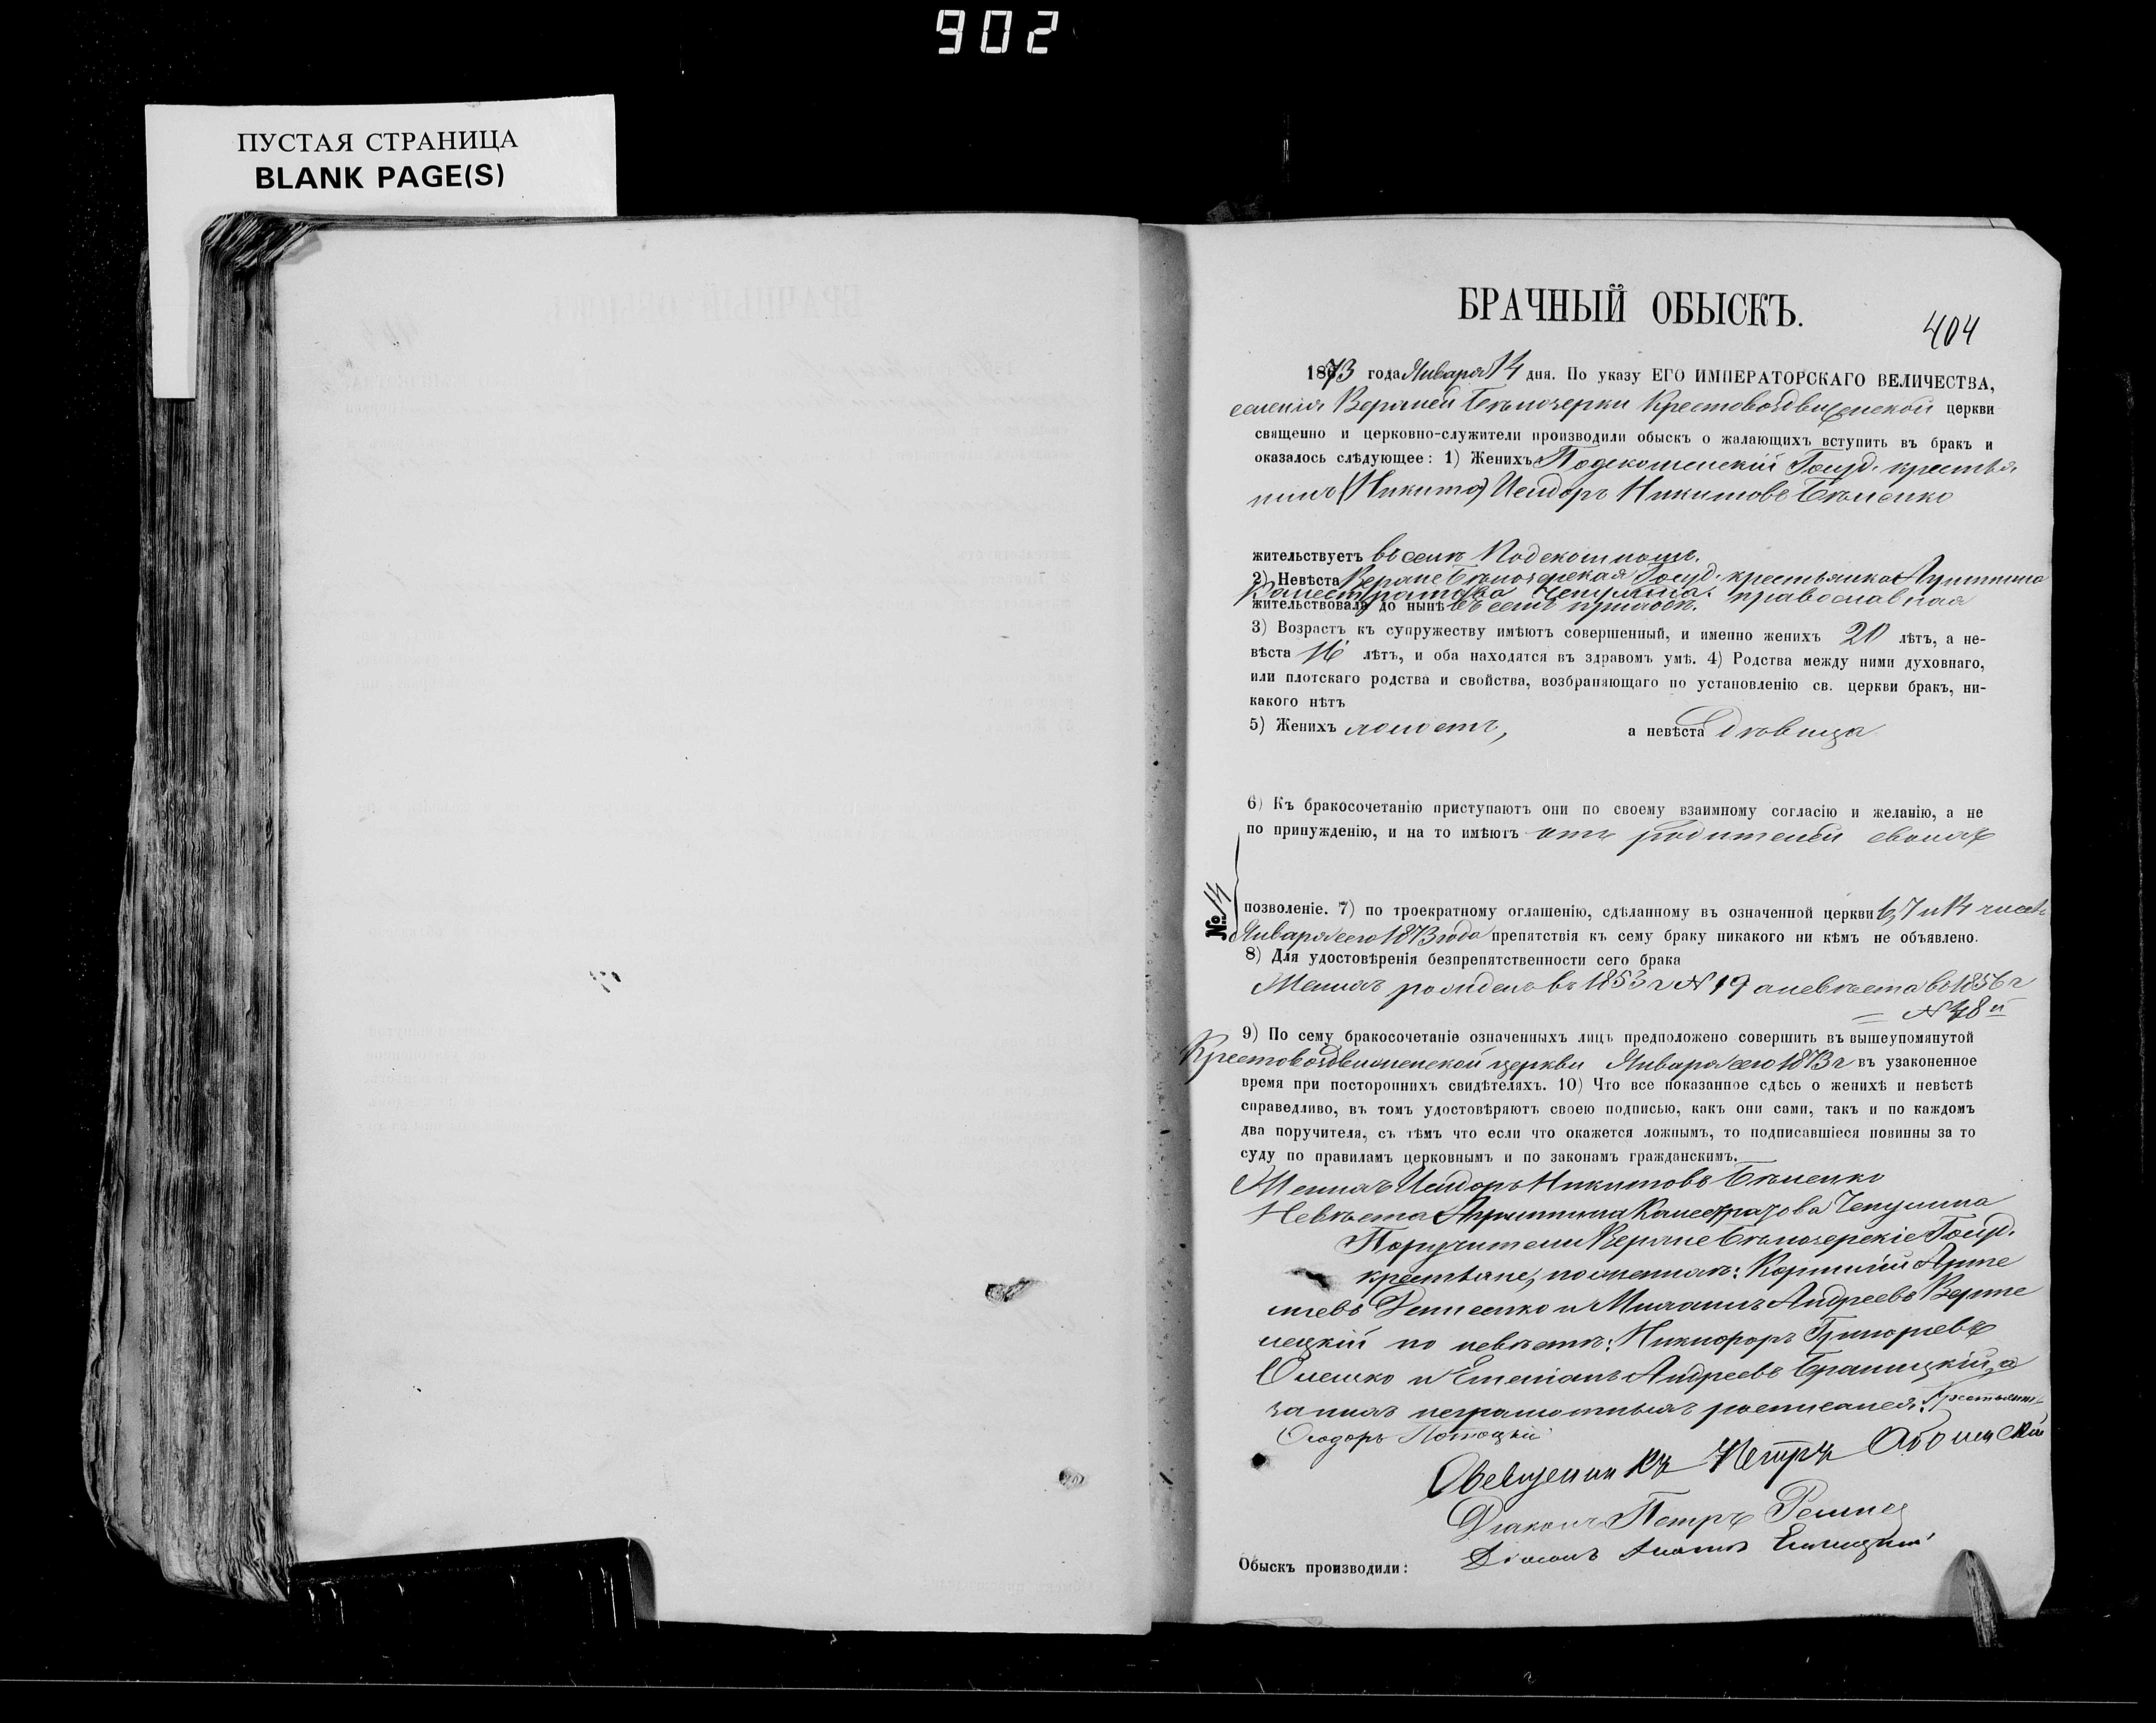 902
ПУСТАЯ СТРАНИЦА
BLANK PAGE(S)
БРАЧНЫЙ ОБЫСКЪ.
404
1873 года Января 14 дня. По указу ЕГО ИМПЕРАТОРСКАГО ВЕЛИЧЕСТВА,
селенія Верхней Бѣлозерки Крестовоздвиженской церкви
священно и церковно-служители производили обыскъ о жалающихъ вступить въ бракъ и
оказалось слѣдующее: 1) Женихъ Госуд. крестья
нинъ (Никита) Исидоръ Никитовъ Бѣленко
жительствуетъ въ селѣ
2) Невѣста Верхне Бѣлозерская Госуд. крестьянка
православная
жительствовала до нынѣ въ семъ приходѣ.
3) Возрастъ къ супружеству имѣютъ совершенный, и именно женихъ 20 лѣтъ, а не-
вѣста 16 лѣтъ, и оба находятся въ здравомъ умѣ. 4) Родства между ними духовнаго,
или плотскаго родства и свойства, возбраняющаго по установленію св. церкви бракъ, ни-
какого нѣтъ
5) Женихъ холостъ, а невѣста Дѣвица
6) Къ бракосочетанію приступаютъ они по своему взаимному согласію и желанію, а не
по принужденію, и на то имѣютъ отъ родителей своихъ
№ 14
позволеніе. 7) по троекратному оглашенію, сдѣланному въ означенной церкви 6, 7 и 14 чиселъ
Января сего 1873 года препятствія къ сему браку никакого ни кѣмъ не объявлено.
8) Для удостовѣренія безпрепятственности сего брака
Женихъ рожденъ въ 1853 г № 19 а невѣста въ 1856 г
9) По сему бракосочетаніе означенныхъ лицъ предположено совершить въ вышеупомянутой
Крестовоздвиженской церкви Января сего 1873 г въ узаконенное
время при постороннихъ свидѣтеляхъ. 10) Что все показанное сдѣсь о женихѣ и невѣстѣ
справедливо, въ томъ удостовѣряютъ своею подписью, какъ они сами, такъ и по каждомъ
два поручителя, съ тѣмъ что если что окажется ложнымъ, то подписавшіеся повинны за то
суду по правиламъ церковнымъ и по законамъ гражданскимъ.
Женихъ Исидоръ Никитовъ Бѣленко
Невѣста
Поручители Верхне Бѣлозерскіе Госуд.
крестьяне, по женихѣ: Корнилій Арте
міевъ Денисенко и Михаилъ Андреевъ
по невѣстѣ: Никифоръ Григорьевъ
Олешко и Емеліанъ Андреевъ Браницкій, а
за нихъ неграмотныхъ росписался: Крестьянинъ
Ѳеодоръ Потоцкій
Священникъ Петръ
Діаконъ Петръ
Обыскъ производили: